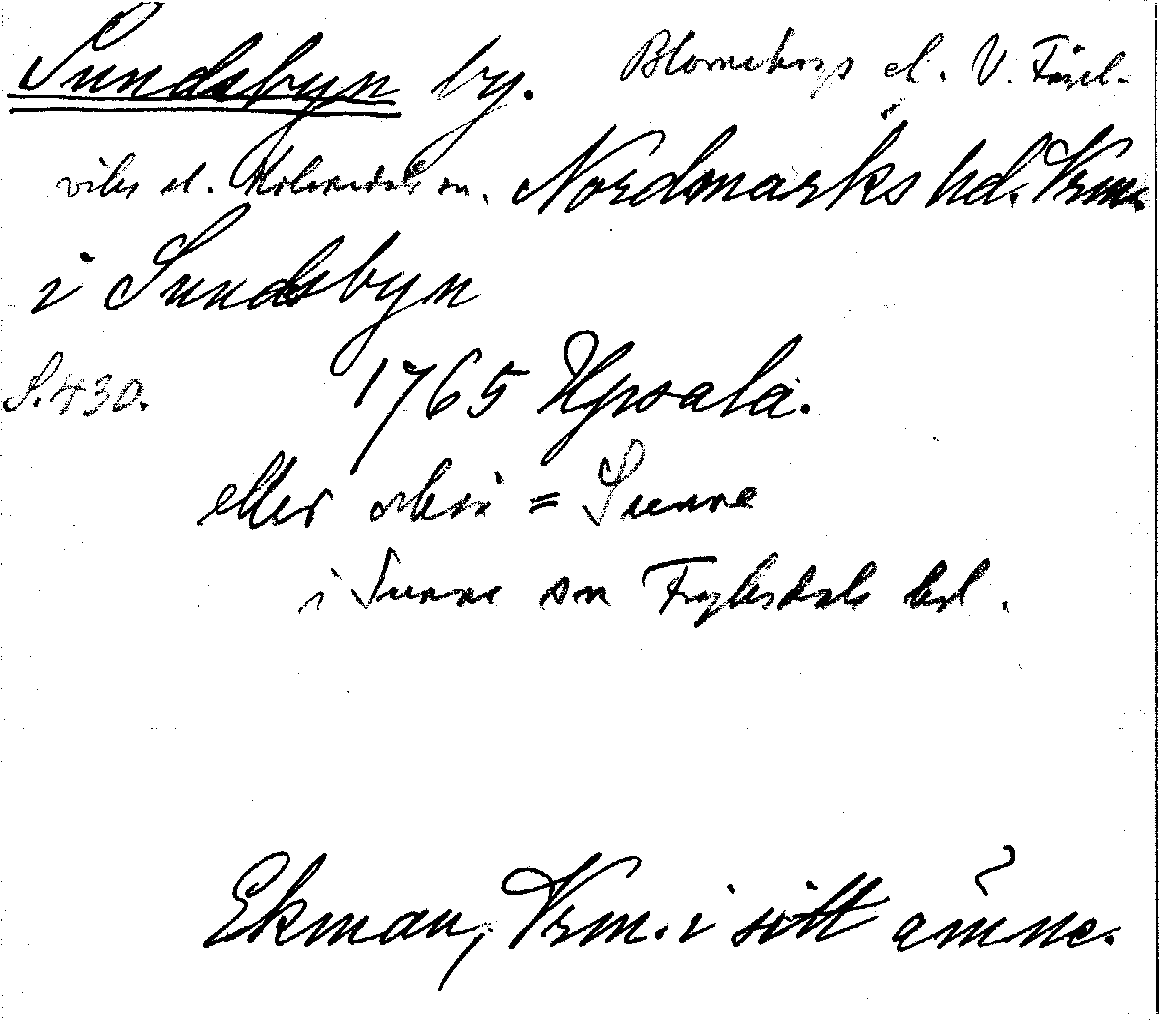 Sundsbyn by. Blomskogs el. V. Fågel-
viks el. Holmedals sn. Nordmarks hd. Vrm.
i Sundsbyn
S. 430. 1765 Upsala.
eller = Sunne
i Sunne sn Fryksdals hd.
Ekman, Vrm. i sitt ämne.